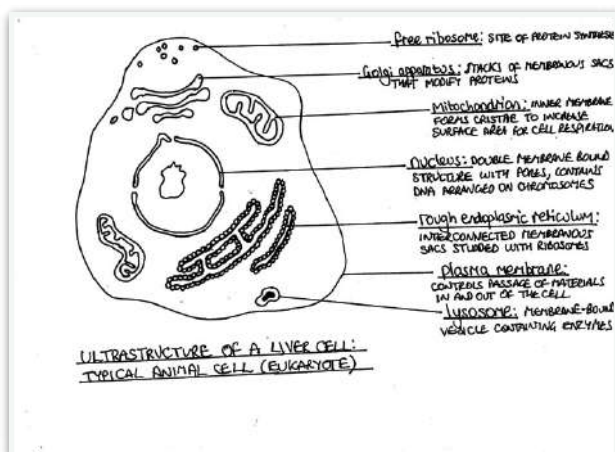 free ribosome: SITE OF PROTEIN SYNTHESIS
Golgi apparatus: STACKS OF MEMBRANOUS SACS
THAT MODIFY PROTEINS
Mitochondrion: INNER MEMBRANE
FORMS CRISTAE TO INCREASE
SURFACE AREA FOR CELL RESPIRATION
nucleus: DOUBLE MEMBRANE BOUND
STRUCTURE WITH PORES, CONTAINS
DNA ARRANGED ON CHROMOSOMES
rough endoplasmic reticulum:
INTERCONNECTED MEMBRANOUS
SACS STUDDED WITH RIBOSOMES
plasma membrane:
CONTROLS PASSAGE OF MATERIALS
IN AND OUT OF THE CELL
lysosome: MEMBRANE-BOUND
VESICLE CONTAINING ENZYMES
ULTRASTRUCTURE OF A LIVER CELL:
TYPICAL ANIMAL CELL (EUKARYOTE)